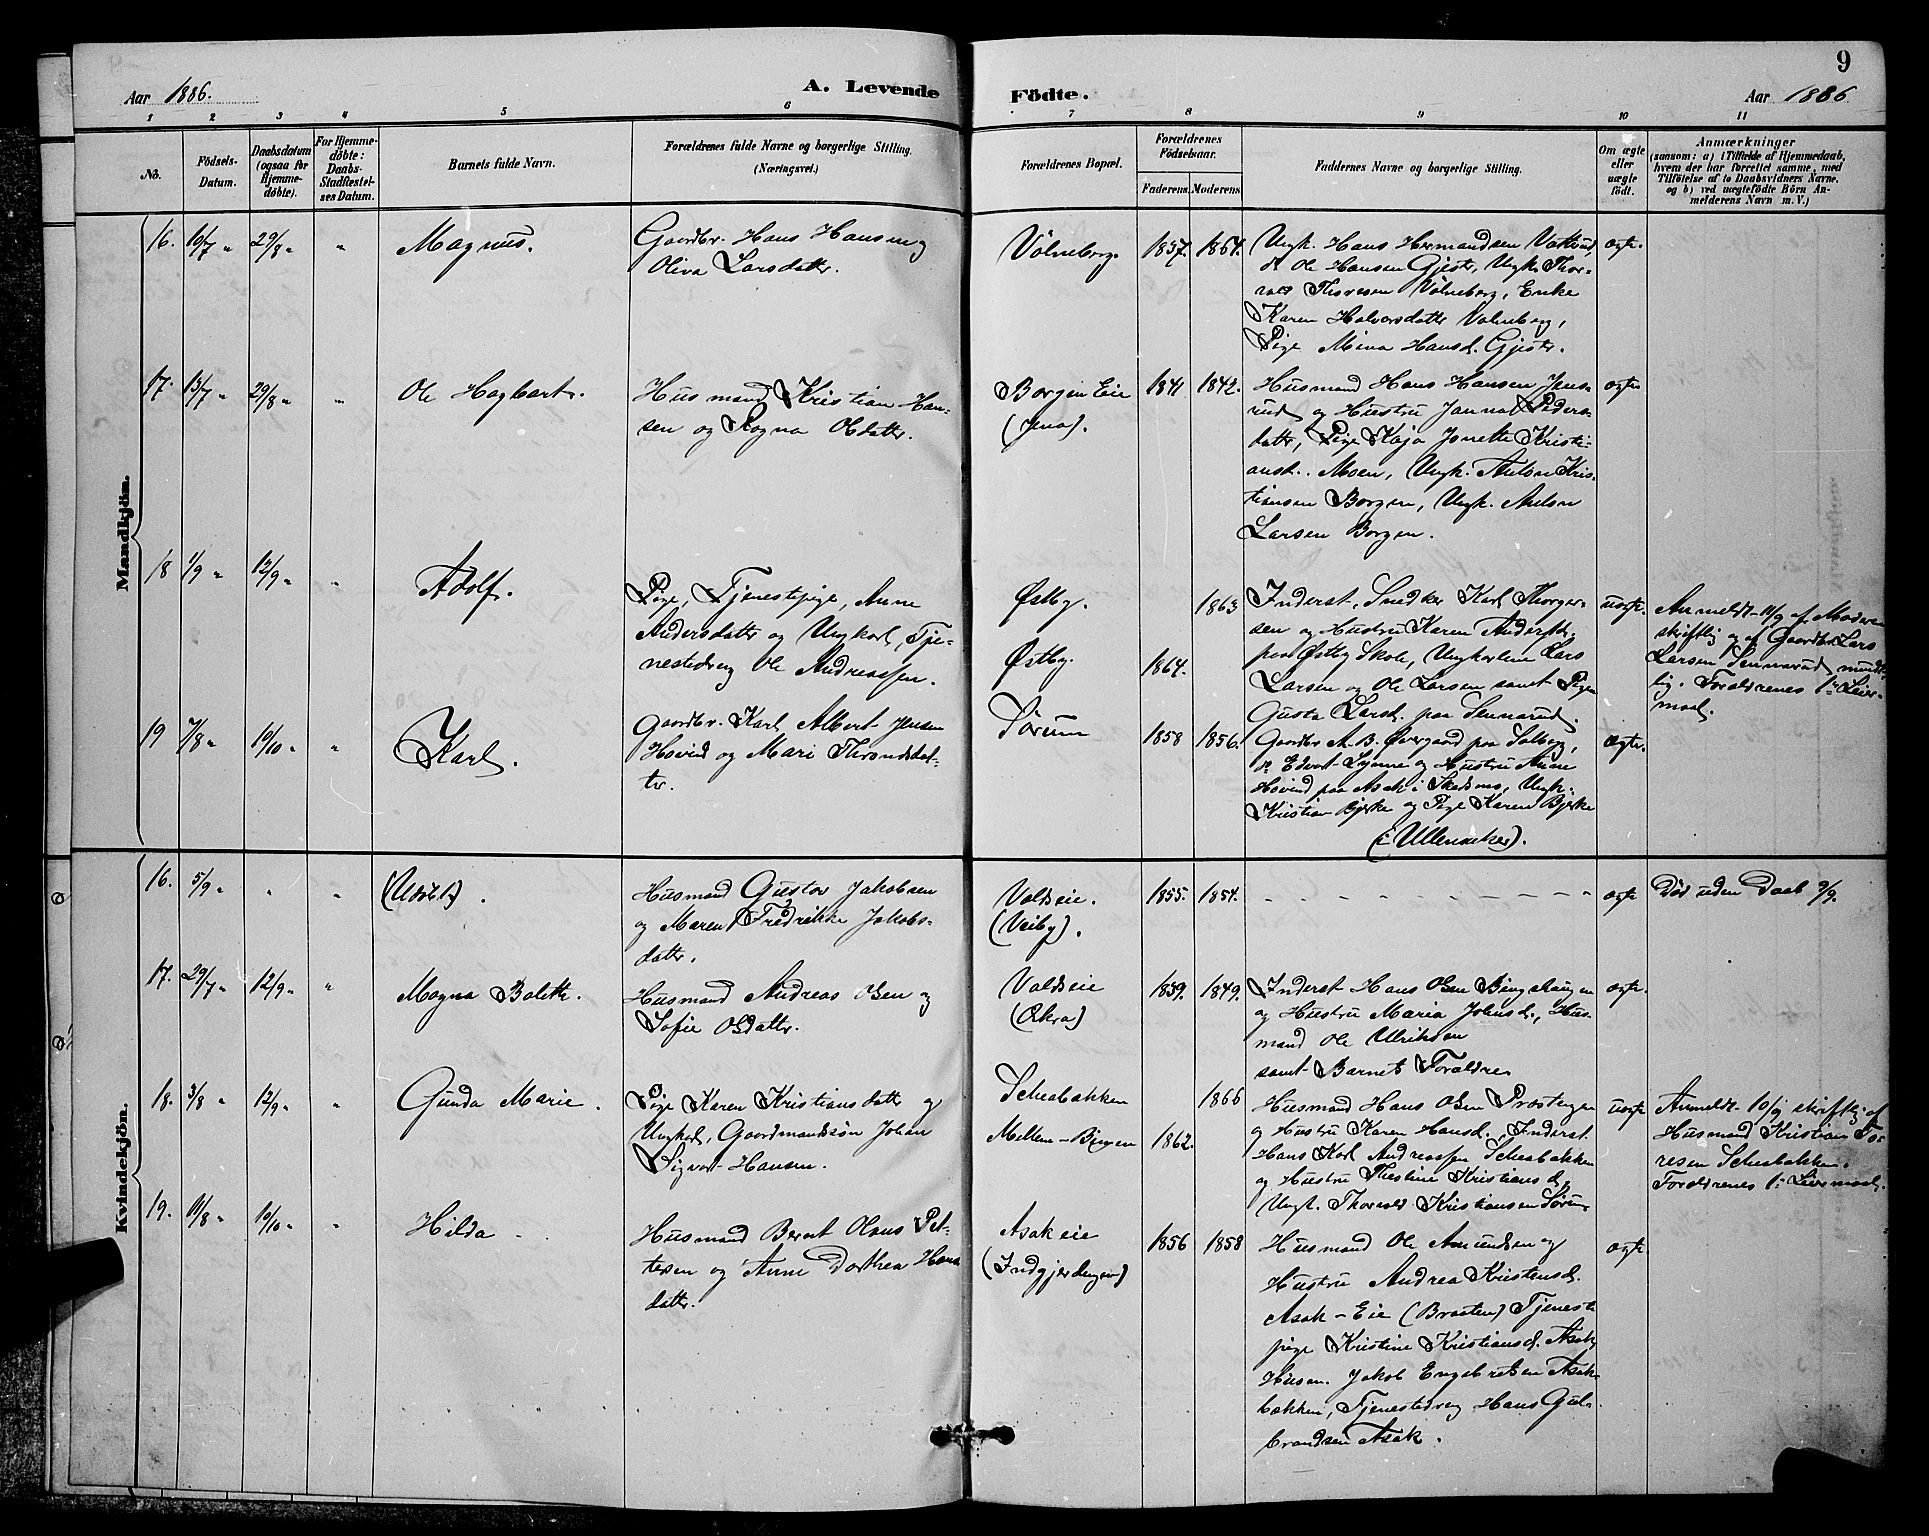 9
Aar 1886.
A. Levende Födte.
Aar 1886
1 2 3 4 5 6 7 8 9 10 11
No.
Födsels-
Datum.
Daabsdatum
(ogsaa for
Hjemme-
døbte).
For Hjemme-
døbte:
Daabs-
Stadfæstel-
ses Datum.
Barnets fulde Navn.
Forældrenes fulde Navne og borgerlige Stilling.
(Næringsvei.)
Forældrenes Bopæl.
Forældrenes
Födselsaar.
Faderens. Moderens.
Faddernes Navne og borgerlige Stilling.
Om ægte
eller
uægte
födt.
Anmærkninger
(saasom: a) i Tilfælde af Hjemmedaab,
hvem der har forrettet samme, med
Tilföielse af to Daabsvidners Navne,
og b) ved uægtefödte Börn An-
melderens Navn m. V.)
Mandkjön.
16. 16/7 " 29/8 " "
Magnus.
Gaardbr. Hans Hansen og
Oliva Larsdatter.
Volneberg. 1837. 1864.
Ungk. Hans Hermandsen
do Ole Hansen Gjestr, Ungk. Thor-
vald Thoresen Volneberg, Enke
Karen Halvorsdatter Volneberg,
Pige Mina Hansd. Gjestr.
ægte.
17. 13/7 " 29/8 " "
Ole Hagbart.
Husmand Kristian Han-
sen og Ragna Olsdatter.
Borgen Eie
1841 1842.
Husmand Hans Hansen Jens-
rud og Hustru Janna Peders-
datter, Pige Kaja Jonette Kristi-
ansd. Moen, Ungk. Anton Kris-
tiansen Borgen, Ungk. Anton
Larsen Borgen.
ægte
18 1/9 " 12/9 " "
Adolf.
Pige, Tjenestepige, Anne
Andersdatter og Ungkarl, Tje-
nestedreng Ole Andreassen.
Østby. 1863
Østby. 1864.
Inderst, Snedker Karl Thorger-
sen og Hustru Karen Andersd.
paa Østby Skole, Ungkarlene Lars
Larsen og Ole Larsen samt Pigen
Gusta Larsd. paa Sennerud.
uægte.
Anmeldt 11/9 af Moderen
skriftlig og af Gaardbr. Lars
Larsen Sennerud mundt-
lig. Forældrenes 1ste Leier-
maal.
19 7/8 " 10/10 " "
Karl.
Gaardbr. Karl Albert Jensen
Hovind og Mari Throndsdat-
ter.
Sørum 1858 1856.
Gaardbr A. B. Øvergaard paa Solberg,
do Edvart Lynne og Hustru Anne
Hovind paa Asak i Skedsmo, Ungk.
Kristian Bjerke og Pige Karen Bjerke
(i Ullensaker).
Ægte.
Kvindekjön.
16. 5/9 " " "
(Udøbt).
Husmand Gustav Jakobsen
og Maren Fredrikke Jakobs-
datter.
Valdseie.
(Veiby).
1855. 1854.
ægte
Død uden Daab 9/9.
17. 29/7 " 12/9 " "
Magna Bolette.
Husmand Andreas Olsen og
Sofie Olsdatter.
Valdseie
(Økra)
1839. 1849.
Inderst Hans Olsen Bingshaugen
og Hustru Maria Johnsd., Hus-
mand Ole Ulriksen
samt Barnets Forældre
ægte.
18. 3/8 " 12/9 " "
Gunda Marie.
Pige Karen Kristiansdatter og
Ungkarl, Gaardmandssøn Johan
Sigvart Hansen.
Scheabakken 1866
Mellem-Bjugen 1862.
Husmand Hans Olsen Præstengen
og Hustru Karen Hansd., Inderst
Hans Karl Andreassen Scheabakken
og Hustru Thestine Kristiansd.,
Ungk. Thorvald Kristiansen Sørum
uægte
Anmeldt 10/9 skriftlig af
Husmand Kristian To-
resen Scheabakken.
Forældrenes 1ste Leiermaal.
19. 11/8 " 10/10 " "
Hilda
Husmand Bernt Olaus Pet-
tersen og Anne Dorthea Hans
datter.
Asak eie
(Indgjerdingen)
1856 1858
Husmand Ole Amundsen og
Hustru Andrea Kristensd.
Asak-Eie (Braaten) Tjeneste
pige Kristine Kristiansd. Asak
Husen. Jakob Engebretsen Asak-
bækken, Tjenestedreng Hans Gul-
brandsen Asak.
ægte.